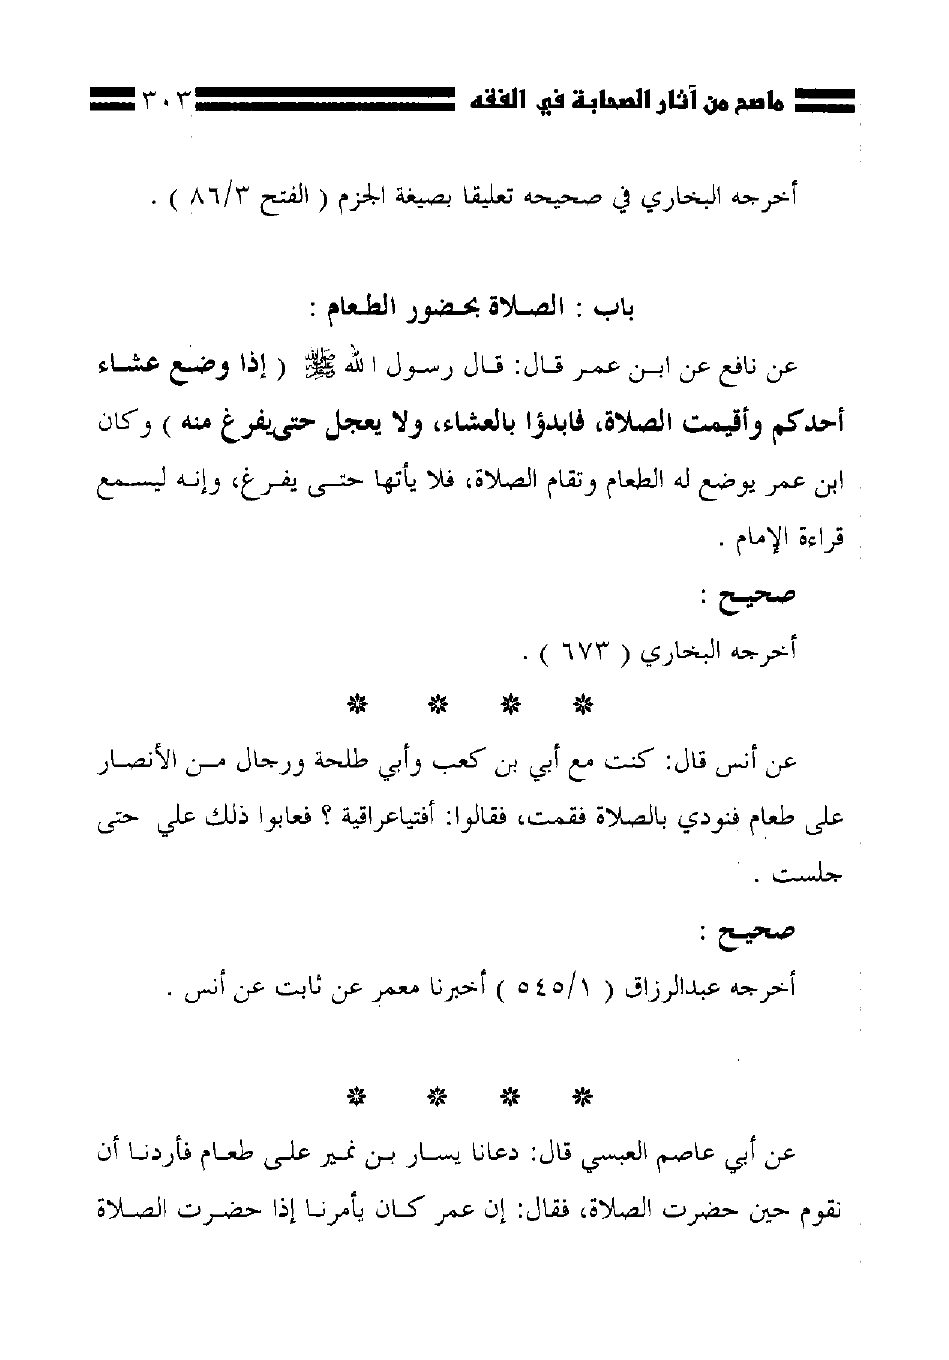 ماصح من آثار الصحابة في الفقه ٣٠٣
أخرجه البخاري في صحيحه تعليقا بصيغة الجزم ( الفتح ٨٦/٣ ) .
باب : الصلاة بحضور الطعام :
عن نافع عن ابن عمر قال: قال رسول الله ﷺ ( إذا وضع عشاء
أحدكم وأقيمت الصلاة، فابدؤا بالعشاء، ولا يعجل حتى يفرغ منه ) وكان
ابن عمر يوضع له الطعام وتقام الصلاة، فلا يأتها حتى يفرغ، وإنه ليسمع
قراءة الإمام .
صحيح :
أخرجه البخاري ( ٦٧٣ ) .
عن أنس قال: كنت مع أبي بن كعب وأبي طلحة ورجال من الأنصار
على طعام فنودي بالصلاة فقمت، فقالوا: أفتياعراقية ؟ فعابوا ذلك علي حتى
جلست .
صحيح :
أخرجه عبدالرزاق ( ٥٤٥/١ ) أخبرنا معمر عن ثابت عن أنس .
عن أبي عاصم العبسي قال: دعانا يسار بن نمير على طعام فأردنا أن
نقوم حين حضرت الصلاة، فقال: إن عمر كان يأمرنا إذا حضرت الصلاة